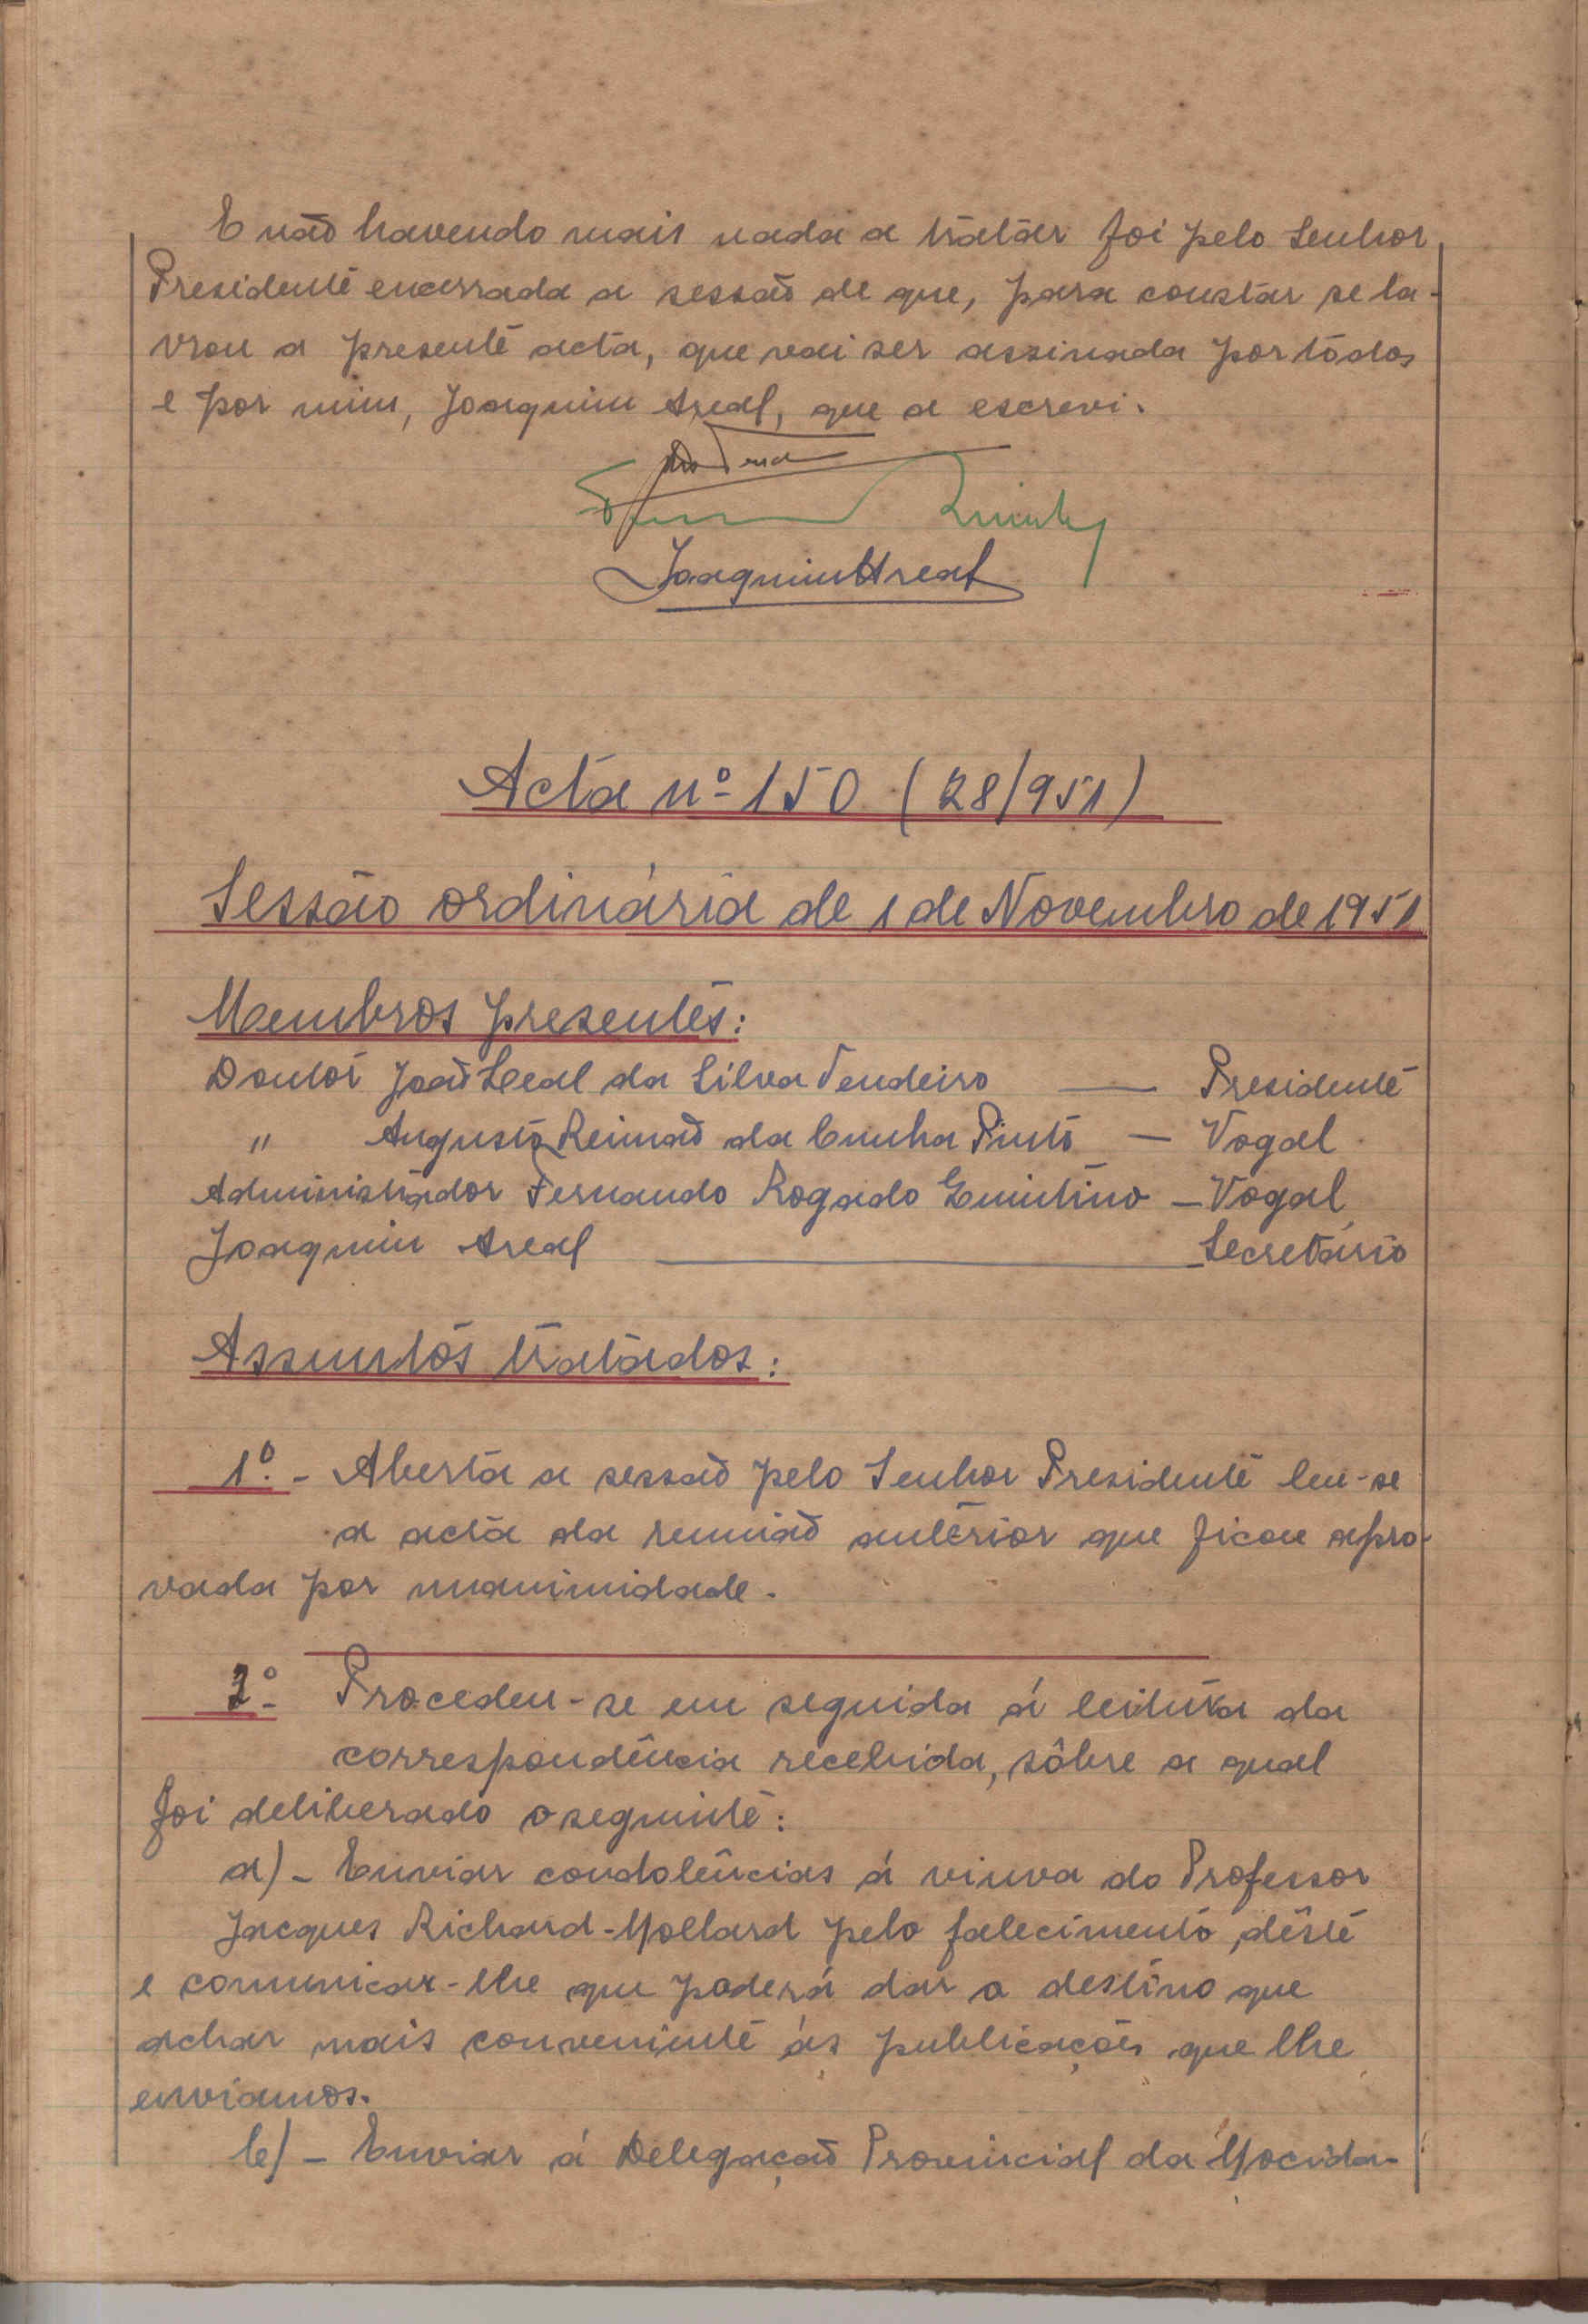 E não havendo mais nada a tratar foi pelo Senhor
Presidente encerrada a sessão de que, para constar se la-
vrou a presente acta, que vai ser assinada por todos
e por mim, Joaquim Areal, que a escrevi.
Joaquim Areal
Acta nº 150 (28/951)
Sessão ordinária de 1 de Novembro de 1951
Membros presentes:
Doutor João Leal da Silva Tendeiro — Presidente
" Augusto Reimão da Cunha Pinto — Vogal
Administrador Fernando Rogado Quintino — Vogal
Joaquim Areal — Secretário
Assuntos tratados:
1º. - Aberta a sessão pelo Senhor Presidente leu-se
a acta da reunião anterior que ficou apro-
vada por unanimidade.
2º Procedeu-se em seguida á leitura da
correspondência recebida, sôbre a qual
foi deliberado o seguinte:
a) - Enviar condolências á viuva do Professor
Jacques Richard-Mollard pelo falecimento dêste
e comunicar-lhe que poderá dar o destino que
achar mais conveniente ás publicações que lhe
enviamos.
b) - Enviar á Delegação Provincial da Mocida-